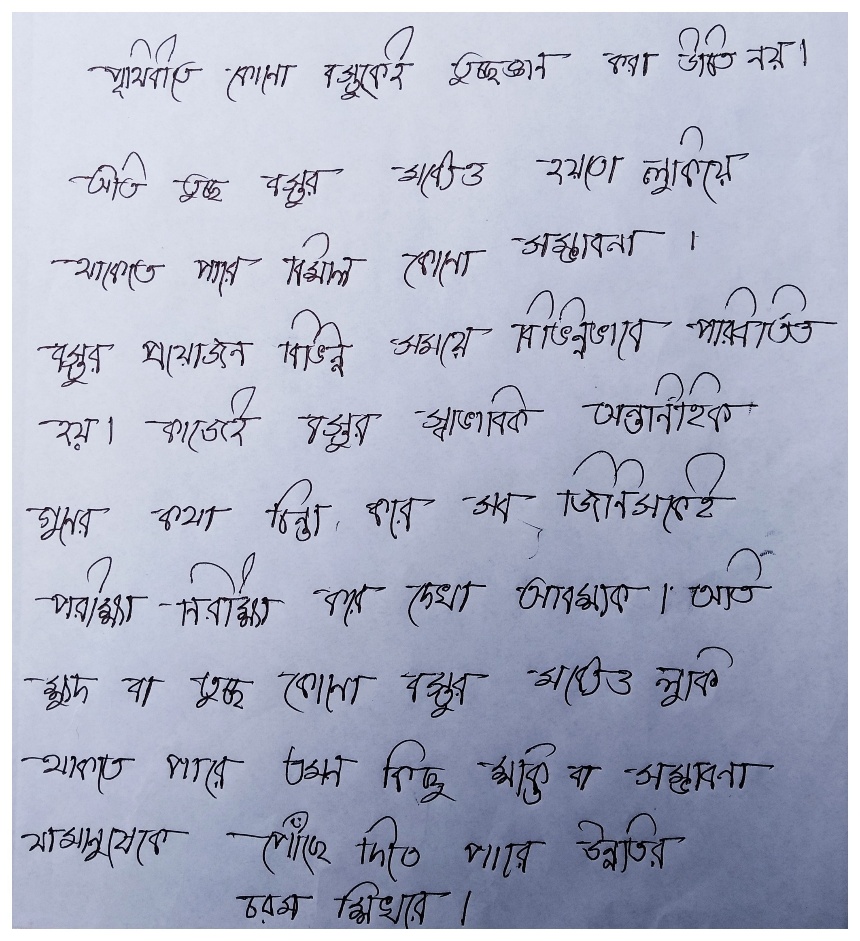 পৃথিবীতে কোনো বস্তুকেই তুচ্ছজ্ঞান করা উচিত নয়।
অতি তুচ্ছ বস্তুর মধ্যেও হয়তো লুকিয়ে
থাকতে পারে বিশাল কোনো সম্ভাবনা ।
বস্তুর প্রয়োজন বিভিন্ন সময়ে বিভিন্নভাবে পরিবর্তিত
হয়। কাজেই বস্তুর স্বাভাবিক অন্তর্নিহিত
গুনের কথা চিন্তা করে সব জিনিসকেই
পরীক্ষা নিরীক্ষা করে দেখা আবশ্যক । অতি
ক্ষুদ্র বা তুচ্ছ কোনো বস্তুর মধ্যেও লুকি
থাকতে পারে এমন কিছু শক্তি বা সম্ভাবনা
যা মানুষকে পৌঁছে দিতে পারে উন্নতির
চরম শিখরে ।